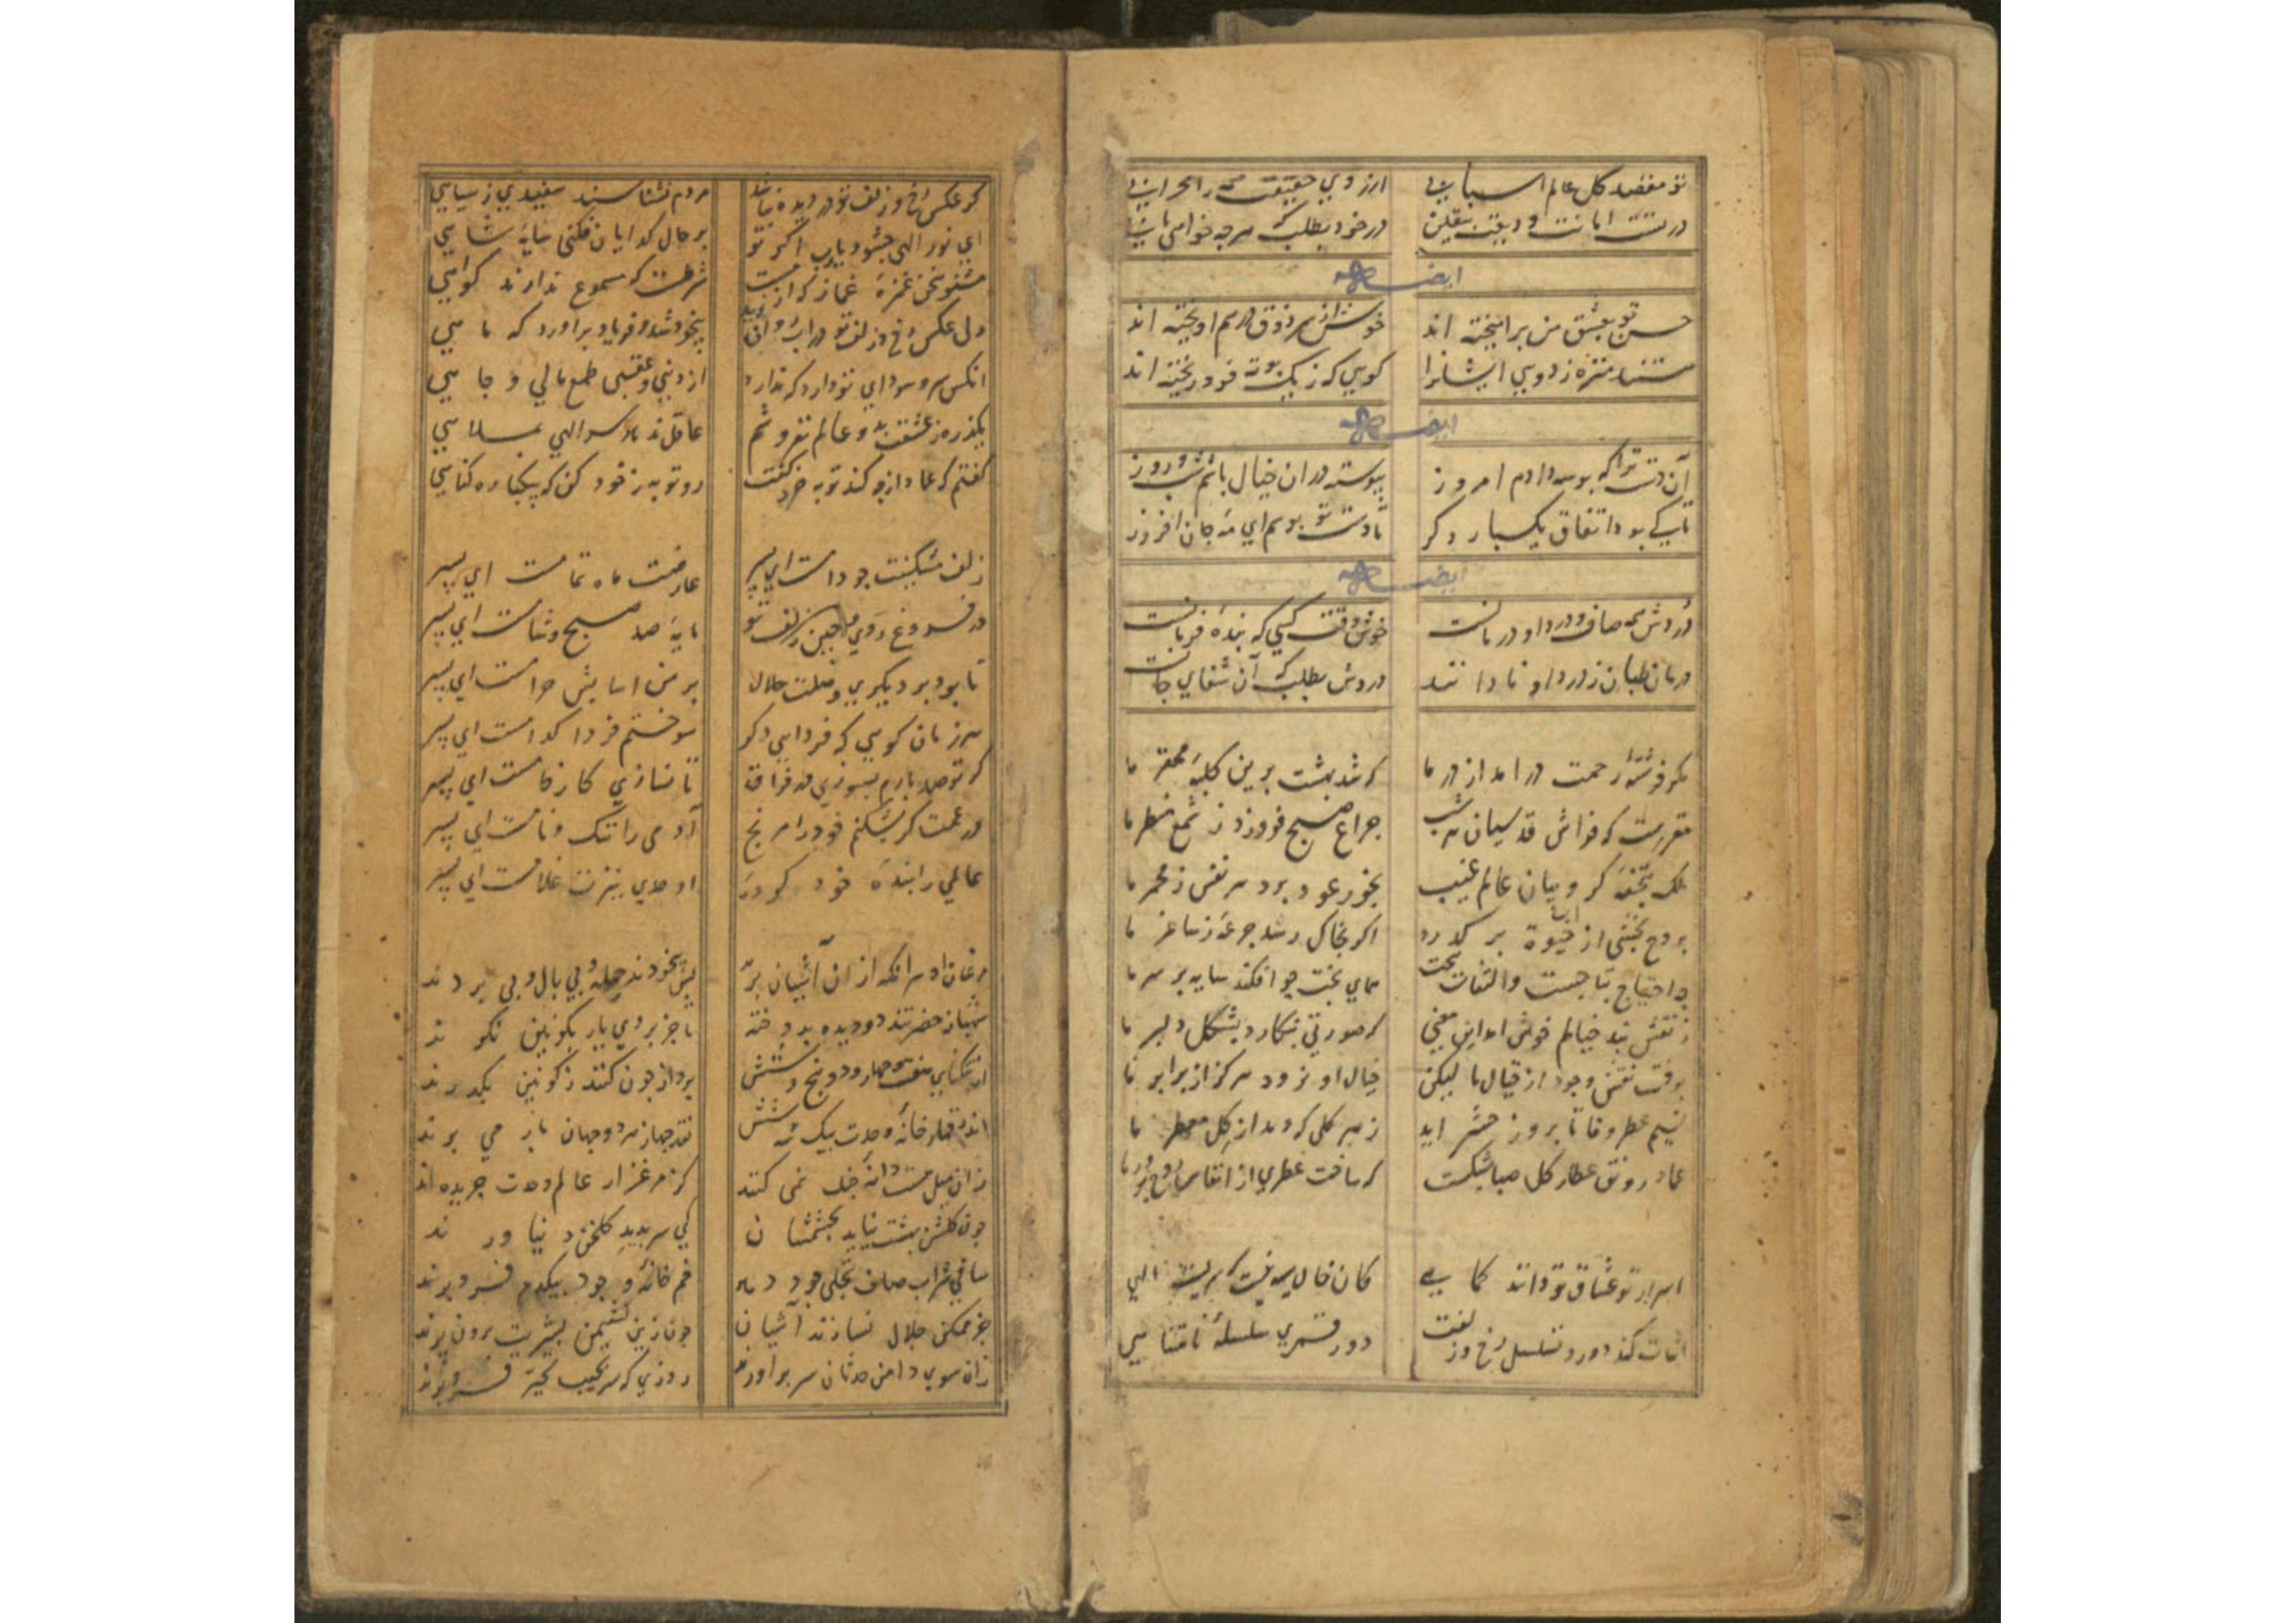 تو مقصد کل عالم اسبابی از روی حقیقت همه را محرابی
در تست امانت ودیعت بیقین در خود بطلب هر چه خواهی یابی
ایضا له
حسن تو بعشق من برانیخته اند خوش از سر ذوق در هم اویخته اند
مستند منزه ز دویی ایشانرا کویی که ز یک بوته فرو ریخته اند
ایضا له
آن دست ترا که بوسه دادم امروز پیوسته در ان خیال باشم شب و روز
تا کی بود اتفاق یکبار دکر تا دست تو بوسم ای مه جان افروز
ایضا له
دردش همه صاف و درد او درمانست خوش وقت کسی که بنده فرمانست
درمان طلبان ز درد او نادانند دردش بطلب که آن شفای جانست
مکر فرشته رحمت در امد از در ما که شد بهشت برین کلبه محقر ما
مقررست که فراش قدسیان هر شب چراغ صبح فروزد ز شمع منظر ما
ملک بتحفه کروبیان عالم غیب بخور عود برد هر نفس ز مجمر ما
بروح بخشی از حیوة بر کذرد اکر بخاک رسد جرعه ز ساغر ما
چه احتیاج بتاجست والتفات بتخت همای بخت چو افکند سایه بر سر ما
ز نقش بند خیالم خوش امد این معنی که صورتی بنکارد بشکل دلبر ما
برفت نقش وجود از خیال ما لیکن خیال او نرود هرکز از برابر ما
نسیم عطر وفا تا بروز حشر اید ز هر کلی که دمد از کل معطر ما
عماد رونق عطار کل صبا بشکست که یافت عطری از انفاس روح پرور ما
اسرار تو عشاق تو دانند کماهی کان خال سیه نیست که سریست الهی
اثبات کند دور و تسلسل رخ و زلفت دور قمری سلسله نامتناهی
کر عکس رخ و زلف تو در دیده نباشد مردم نشناسند سفیدی ز سیاهی
ای نور الهی چشود یارب اکر تو بر حال کدایان فکنی سایه شاهی
مشنو سخن غمزه غماز که از مست شرطست که مسموع ندارند کواهی
دلی عکس رخ و زلف تو در اب روان دید بیخود شد و فریاد براورد که ماهی
انکس سر و سودای تو دارد که ندارد از دنیی و عقبی طمع مالی و جاهی
یکذره ز عشقت بدو عالم نفروشم عاقل ندهد سر الهی بملاهی
کفتم که عماد از چه کند توبه خرد کفت رو توبه ز خود کن که بیکباره کناهی
زلف مشکینت چو دامست ای پسر عارضت ماه تمامست ای پسر
در فروغ روی و چین زلف تو مایه صد صبح و شامست ای پسر
تا بود بر دیکری وصلت حلال بر من اسایش حرامست ای پسر
هر زمان کویی که فردایی دکر سوختم فردا کدامست ای پسر
کر تو صد بارم بسوزی در فراق تا نسازی کار خامست ای پسر
در غمت کر بشکنم خود را مرنج آدمی را ننک و نامست ای پسر
عالمی را بنده خود کرده اوحدی نیزت غلامست ای پسر
مرغان او هر انکه از ان آشیان پرند بس بیخودند جمله و بی بال و بی پرند
شهباز حضرتند دو دیده بدوخته تا جز بروی یار بکونین ننکرند
از تنکنای هفت و چهار و دو و پنج و شش پرواز چون کنند ز کونین بکذرند
اندر قمار خانه وحدت بیک شش نقد جهاز هر دو جهان باز می برند
زان میل هشت دانه جنت نمی کنند کز مرغزار عالم وحدت چریده اند
چون کلشن بهشت نیاید بچشمشان کی سر بدید کلخن دنیا در اورند
ساقی شراب صاف تجلی چو در دهد خم خانه وجود بیکدم فرو برند
جز ممکن جلال نسازند آشیان چون زین نشیمن بشریت برون پرند
زان سوی دامن حدثان سر براورند روزی که سر بجیب تحیر فرو برند